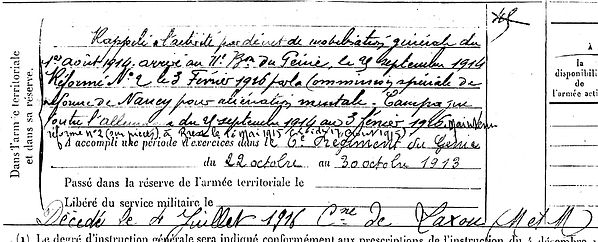 48
Rappelé à l'activité par décret de mobilisation générale du
1er août 1914, arrivé au 11e Bon du Génie, le 29 septembre 1914
Réformé N° 2 le 3 Février 1916 par la Commission spéciale de
réforme de Nancy pour aliénation mentale. Campagne
contre l'Allemagne du 29 septembre 1914 au 3 février 1916. Maintenu
réforme n° 2 (sur pièces), à le 16 Mai 1915 (du 17 Août 1915)
A accompli une période d'exercices dans le 6e Régiment du Génie
du 22 octobre au 30 octobre 1913
Passé dans la réserve de l'armée territoriale le
Libéré du service militaire le
Décédé le 4 Juillet 1916 Cne de Laxou M et M
Dans l'armée territoriale
et dans sa réserve.
À
la disponibil
de l'armée acti
(1) Le degré d'instruction générale sera indiqué conformément aux prescriptions de l'instruction du 4 décembre